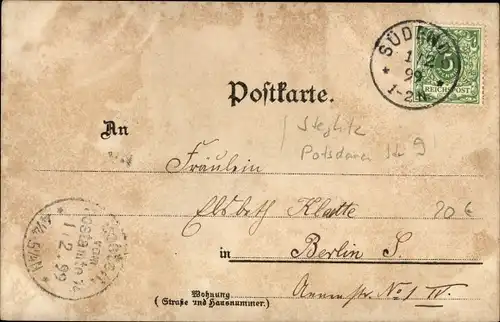 SÜDENDE
1/2
99
* 1-2N *
5
REICHSPOST
Postkarte.
Steglitz
An
Potsdamer Str 9
Fräulein
Elsbeth Klatte
20 €
in Berlin S.
Wohnung
(Straße und Hausnummer.)
Annenstr. No 1 IV.
1. 2. 99
* 4¼-5¼N *